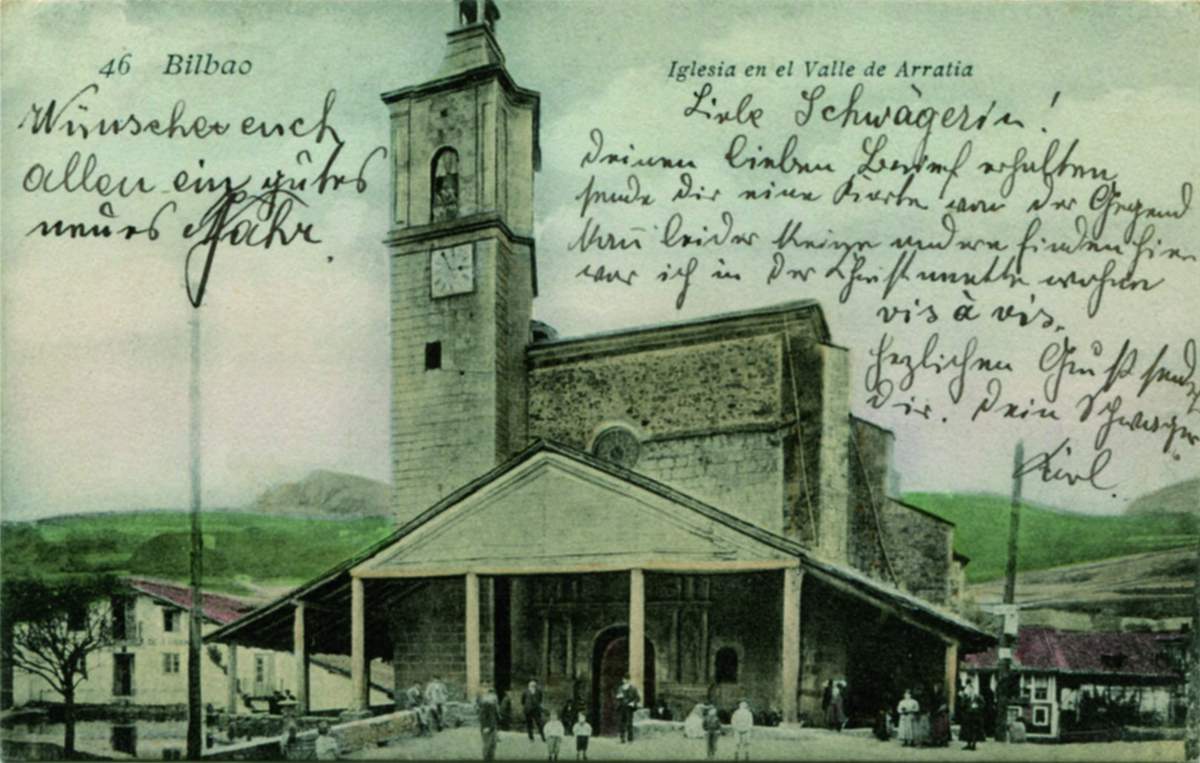 46 Bilbao
Iglesia en el Valle de Arratia
Wünsche euch
allen ein gutes
neues Jahr.
Liebe Schwägerin!
Deinen lieben Brief erhalten
sende Dir eine Karte von der Gegend
Kann leider keine andere finden hier
war ich in der Christmette wohne
vis à vis.
Hezlichen Gruß sende
Dir. Dein Schwager
Karl.